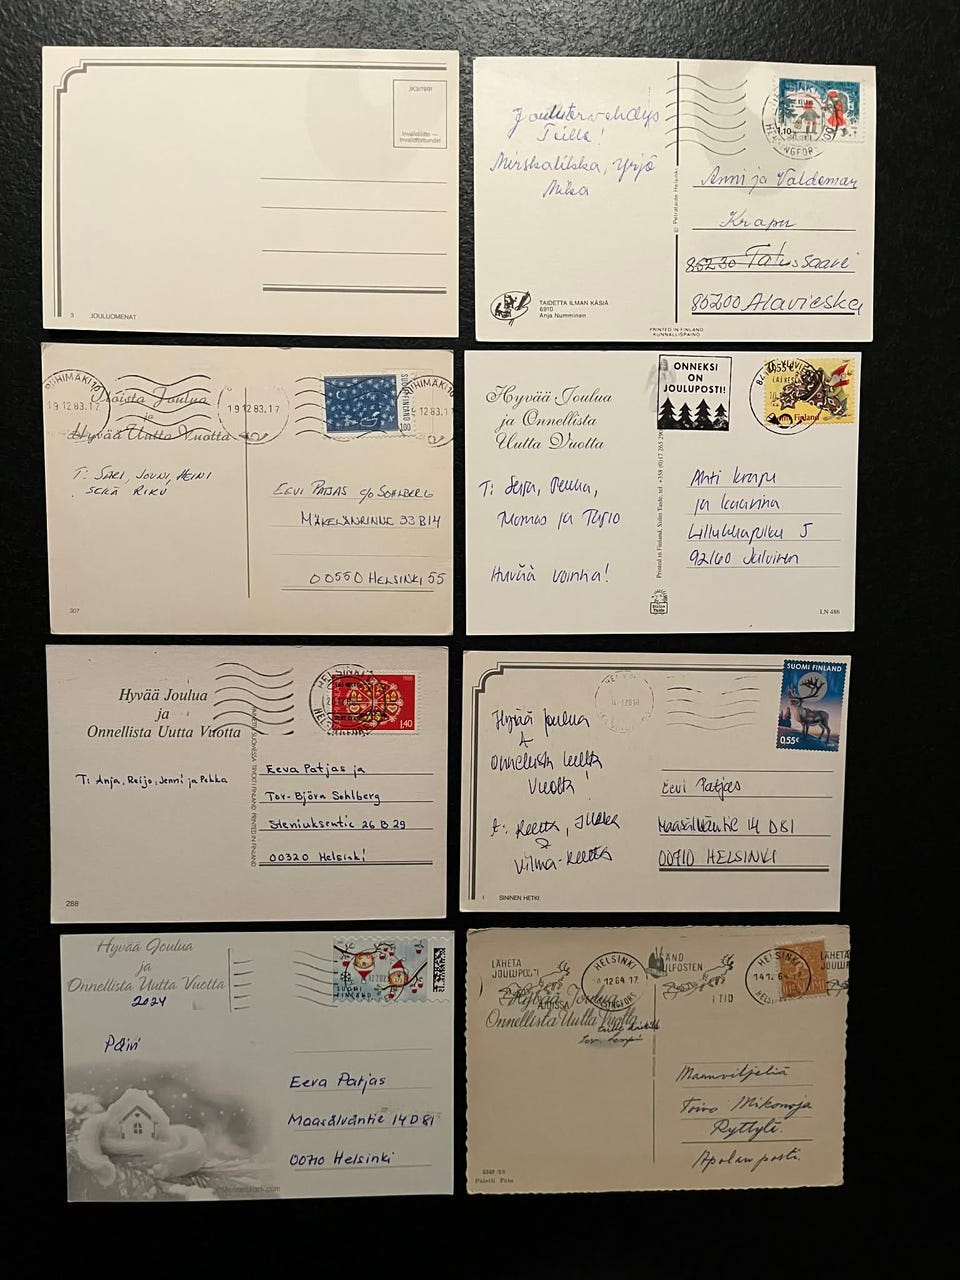 JK3/1991
Invalidiliitto —
Invalidförbundet
3 JOULUOMENAT
Joulutervehdys
Teille!
Mirskaliska, Yrjö
Mika
1,10
© Petrataide Helsinki
Anni ja Valdemar
Krapu
85230 Talussaari
85200 Alavieska
TAIDETTA ILMAN KÄSIÄ
6910
Anja Numminen
PRINTED IN FINLAND
KUNNALLISPAINO
RIIHIMÄKI 10
19.12.83.17
19.12.83.17
RIIHIMÄKI 10
12 83.17
SUOMI FINLAND
100
Iloista Joulua
ja
Hyvää Uutta Vuotta
T: SARI, JOUNI, HEINI
SEKÄ RIKU
EEVI PATJAS c/o SOHLBERG
MÄKELÄNRINNE 33 B 14
00550 HELSINKI 55
307
ONNEKSI
ON
JOULUPOSTI!
0,55€
Finland
Hyvää Joulua
ja Onnellista
Uutta Vuotta
T: Seija, Pekka,
Tuomas ja Tapio
Hyvää vointia!
Ahti Krapu
ja Katariina
92160
LN 486
HELSINKI
1,40
Hyvää Joulua
ja
Onnellista Uutta Vuotta
T: Anja, Reijo, Jenni ja Pekka
PRINTED IN FINLAND
Eeva Patjas ja
Tor-Björn Sohlberg
Steniuksentie 26 B 29
00320 Helsinki
288
SUOMI FINLAND
0,55€
Hyvää Joulua
&
Onnellista Uutta
Vuotta!
t: Reetta,
&
Vilma-Reetta
Eevi Patjas
Maasälväntie 14 D81
00710 HELSINKI
1 SININEN HETKI
Hyvää Joulua
ja
Onnellista Uutta Vuotta
2024
SUOMI
FINLAND
Päivi
Eeva Patjas
Maasälväntie 14 D 81
00710 Helsinki
LÄHETÄ
JOULUPOSTI
AJOISSA
HELSINKI
12 64 17
HELSINGFORS
SÄND
JULPOSTEN
I TID
HELSINKI
14 12 64
LÄHETÄ
JOULUPOSTI
Hyvää Joulua
Onnellista Uutta Vuotta
Maanviljeliä
Toivo Mikonoja
Ryttylä.
Apolan posti.
Paletti Foto